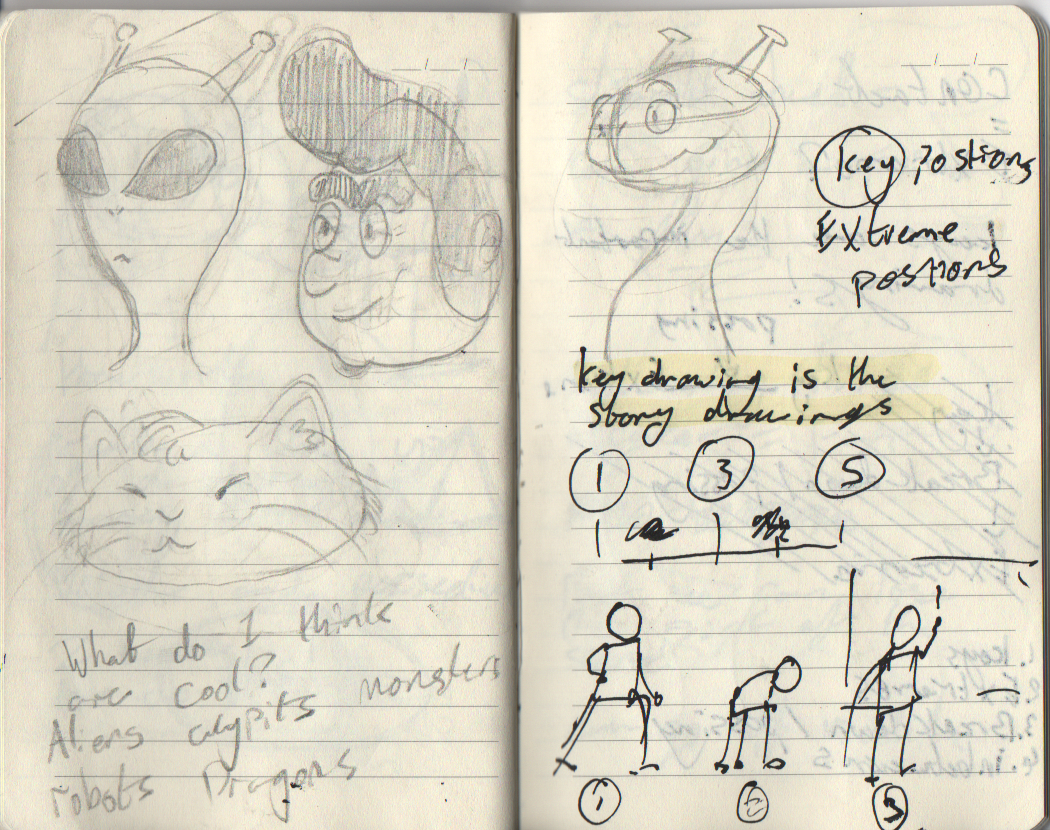 What do I think
are cool? monsters
Aliens
robots Dragons
key postions
Extreme
postions
key drawing is the
story drawings
1 3 5
1 2 3